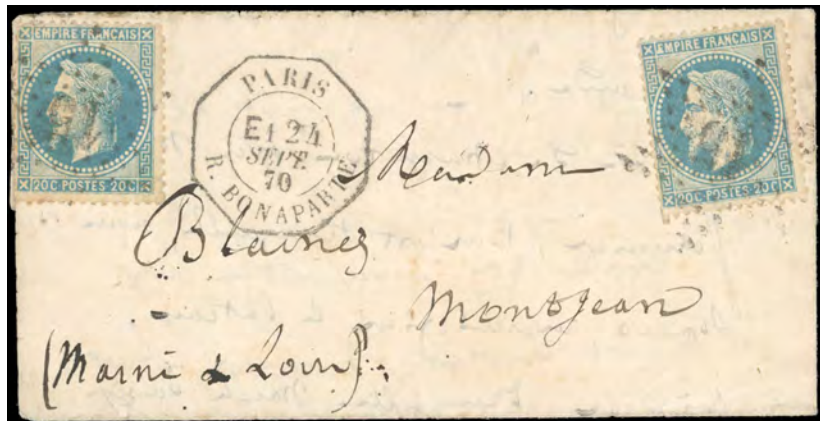 EMPIRE FRANÇAIS
20C POSTES 20C
PARIS
E1 24
SEPT.
70
R. BONAPARTE
EMPIRE FRANÇAIS
20C POSTES 20C
Madame
Blaines
Montjean
(Maine & Loire).